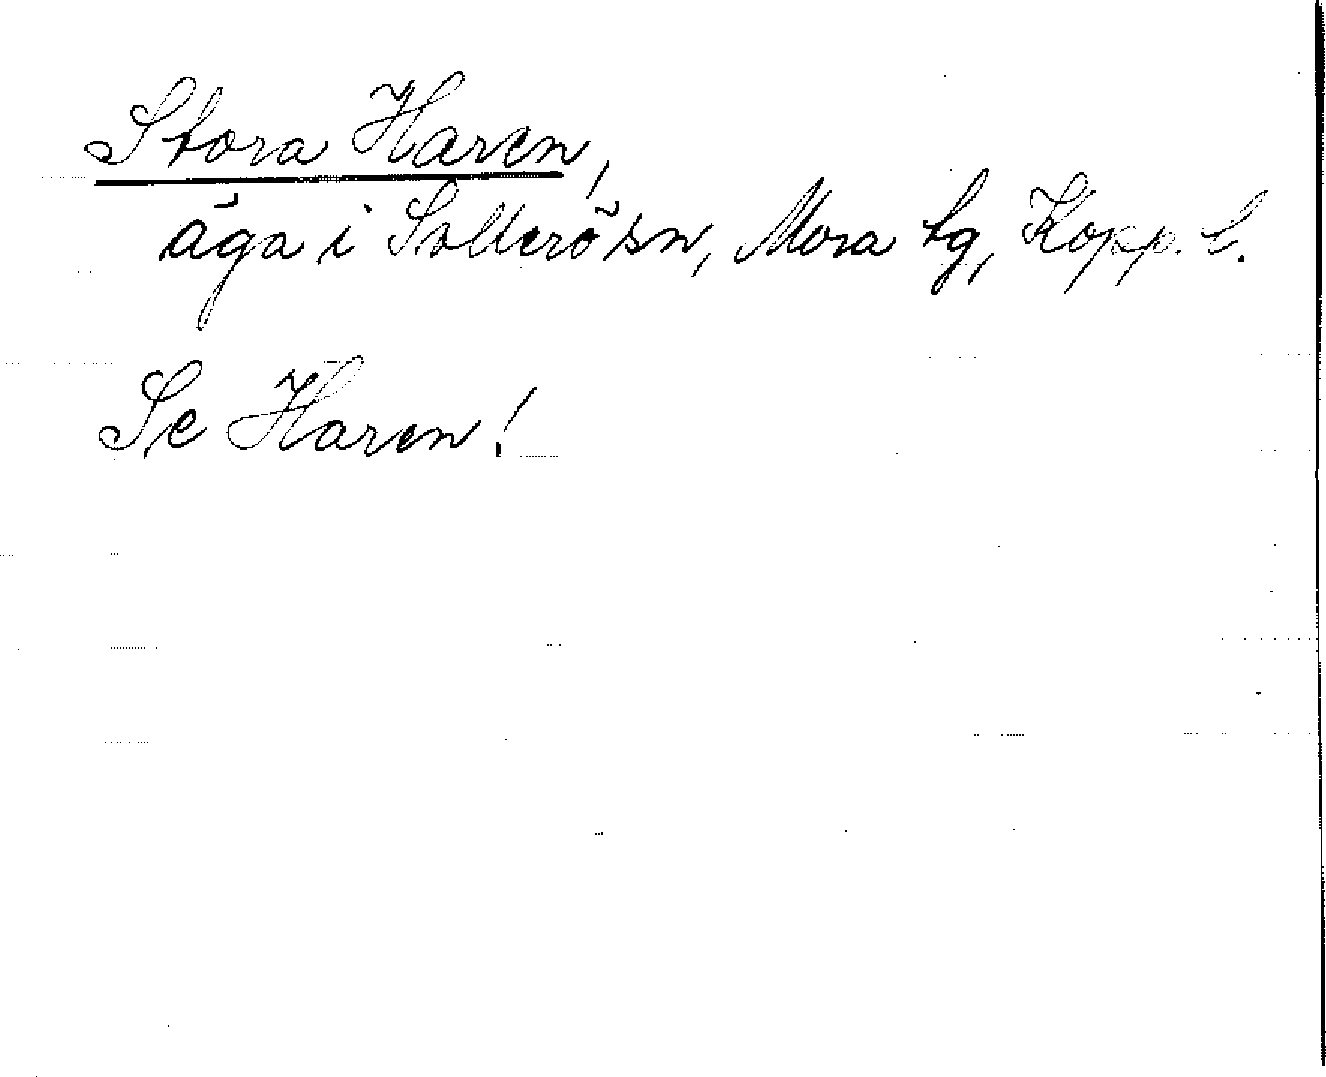 Stora Haren,
äga i Sollerö sn, Mora tg, Kopp. l.
Se Haren!